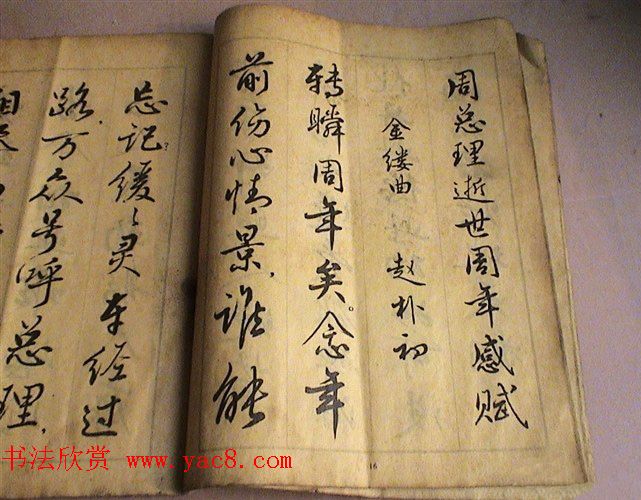 周总理逝世周年感赋
金缕曲 赵朴初
转瞬周年矣。念年
前伤心情景，谁能
忘记？缓缓灵车经过
路，万众号呼总理，
16
书法欣赏 www.yac8.com